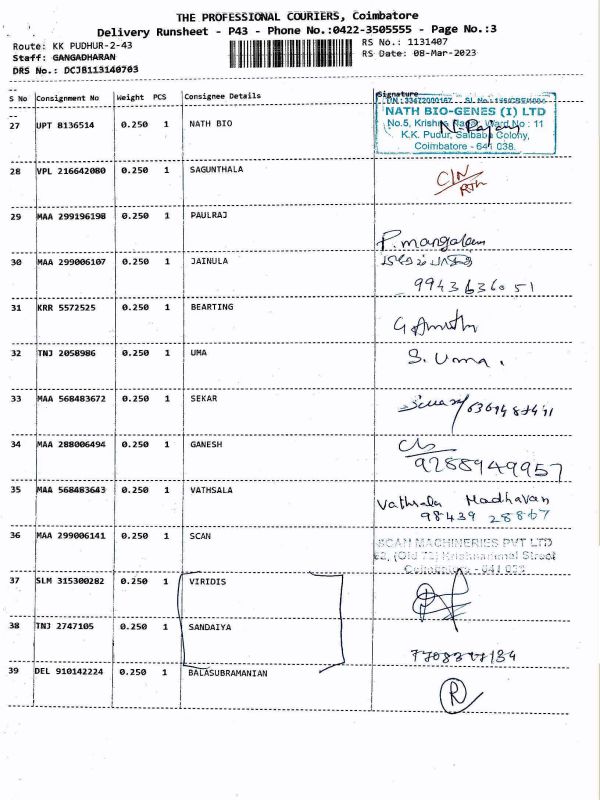 THE PROFESSIONAL COURIERS, Coimbatore
Delivery Runsheet - P43 - Phone No.:0422-3505555 - Page No.:3
Route: KK PUDHUR-2-43
RS No.: 1131407
Staff: GANGADHARAN
RS Date: 08-Mar-2023
DRS No.: DCJB113140703
S No Consignment No Weight PCS Consignee Details Signature
27 UPT 8136514 0.250 1 NATH BIO
NATH BIO-GENES (I) LTD
No.5, Krishna Nagar, Ward No : 11
K.K. Pudur, Saibaba Colony,
Coimbatore - 641 038.
28 VPL 216642080 0.250 1 SAGUNTHALA
29 MAA 299196198 0.250 1 PAULRAJ
P. mangalam
30 MAA 299006107 0.250 1 JAINULA
9943636051
31 KRR 5572525 0.250 1 BEARTING
32 TNJ 2058986 0.250 1 UMA S. Uma.
33 MAA 568483672 0.250 1 SEKAR
34 MAA 288006494 0.250 1 GANESH
9288949957
35 MAA 568483643 0.250 1 VATHSALA Vathsala Madhavan
98439 28867
36 MAA 299006141 0.250 1 SCAN SCAN MACHINERIES PVT LTD
37 SLM 315300282 0.250 1 VIRIDIS
38 TNJ 2747105 0.250 1 SANDAIYA
39 DEL 910142224 0.250 1 BALASUBRAMANIAN
R